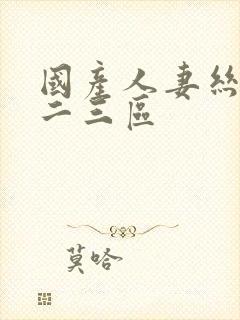 國產人妻絲
二三區
莫哈